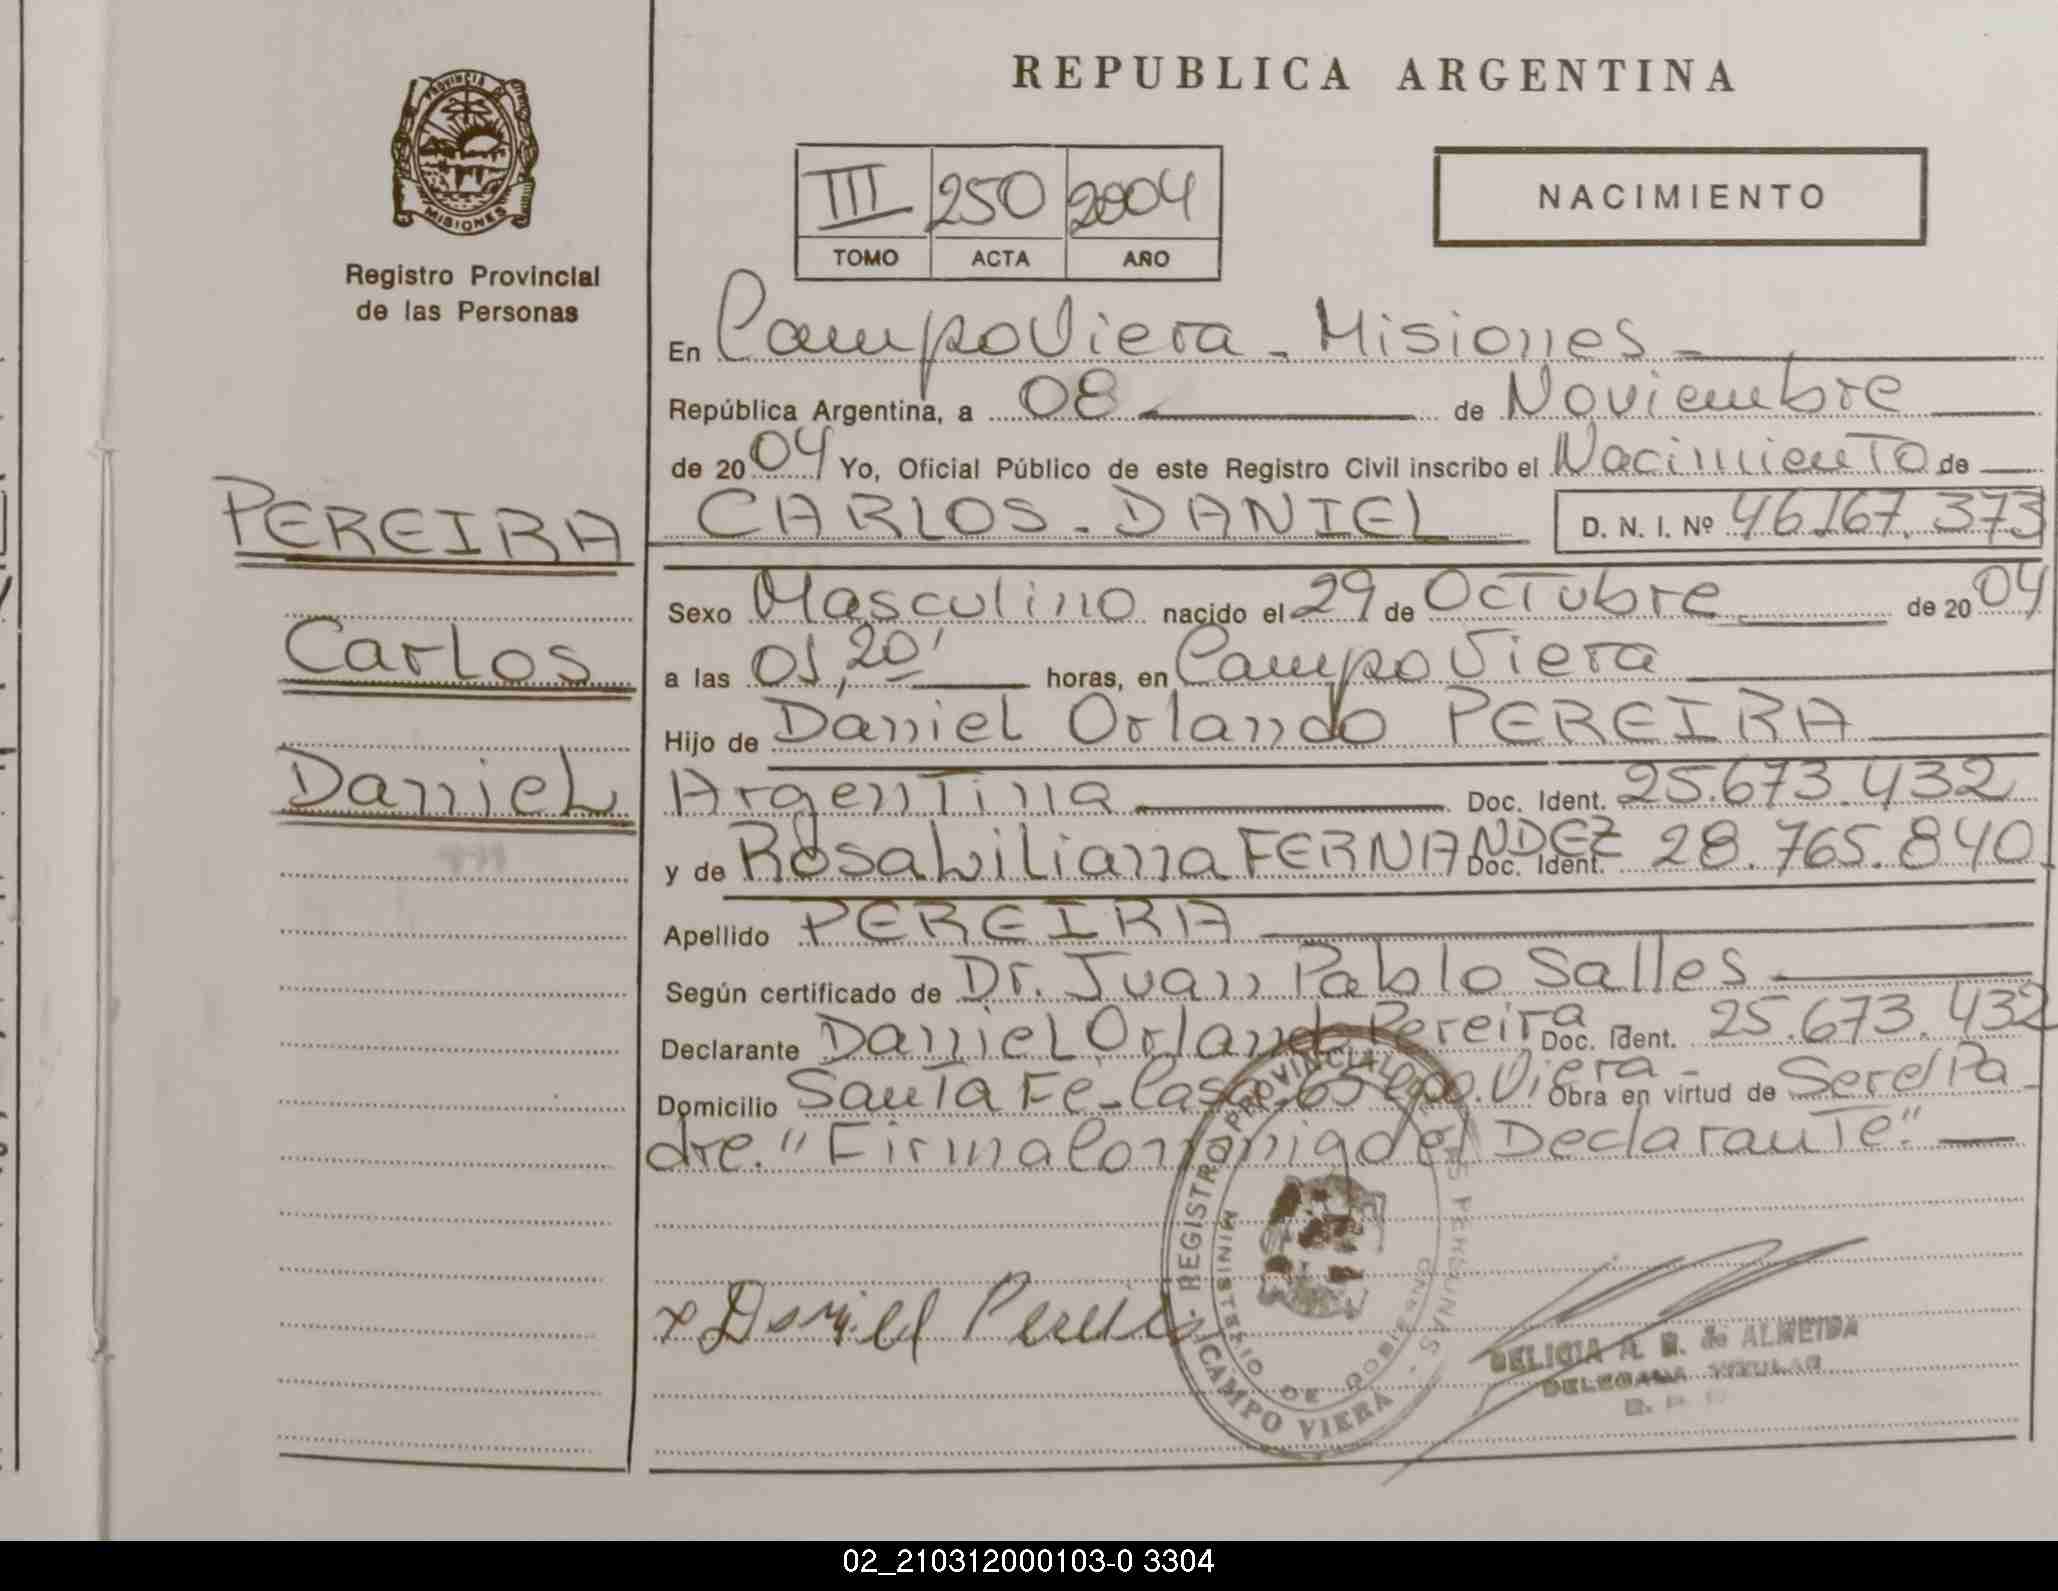 PROVINCIA DE
MISIONES
Registro Provincial
de las Personas
PEREIRA
Carlos
Daniel
REPUBLICA ARGENTINA
III 250 2004
TOMO ACTA AÑO
NACIMIENTO
En Campo Viera - Misiones -
República Argentina, a 08 de Noviembre
de 2004 Yo, Oficial Público de este Registro Civil inscribo el Nacimiento de
CARLOS - DANIEL D. N. I. Nº 46.167.373
Sexo Masculino nacido el 29 de Octubre de 2004
a las 01,20' horas, en Campo Viera
Hijo de Daniel Orlando PEREIRA
Argentina Doc. Ident. 25.673.432
y de Rosa Liliana FERNANDEZ Doc. Ident. 28.765.840.
Apellido PEREIRA
Según certificado de Dr. Juan Pablo Salles
Declarante Daniel Orlando Pereira Doc. Ident. 25.673.432
Domicilio Santa Fé - Casa 65 Cpo. Viera - Obra en virtud de Ser el Pa-
dre. "Firma Conmigo el Declarante".
x Daniel Pereira
REGISTRO PROVINCIAL DE LAS PERSONAS - CAMPO VIERA -
MINISTERIO DE GOBIERNO
DELICIA A. R. de ALMEIDA
DELEGADA TITULAR
02_210312000103-0 3304